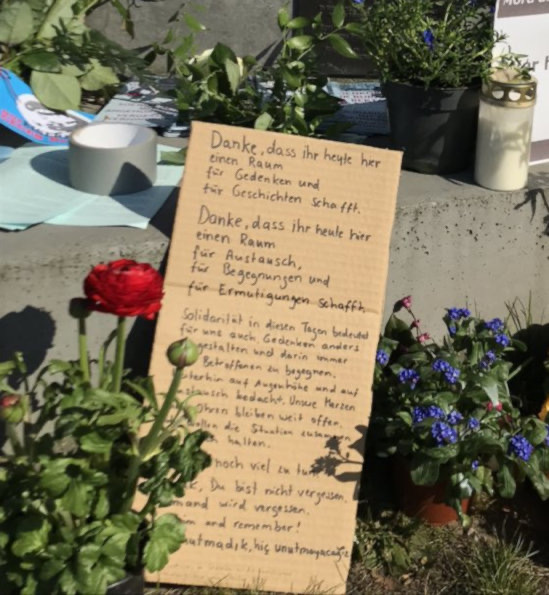 Danke, dass ihr heute hier
einen Raum
für Gedenken und
für Geschichten schafft.
Danke, dass ihr heute hier
einen Raum
für Austausch,
für Begegnungen und
für Ermutigungen schafft.
Solidarität in diesen Tagen bedeutet
für uns auch Gedenken anders
gestalten und darin immer
Betroffenen zu begegnen.
terhin auf Augenhöhe und auf
tausch bedacht. Unsere Herzen
Ohren bleiben weit offen.
wollen die Situation zusammen
halten.
noch viel zu tun
Du bist nicht vergessen.
mand wird vergessen.
and remember!
utmadık, hiç unutmayacağız